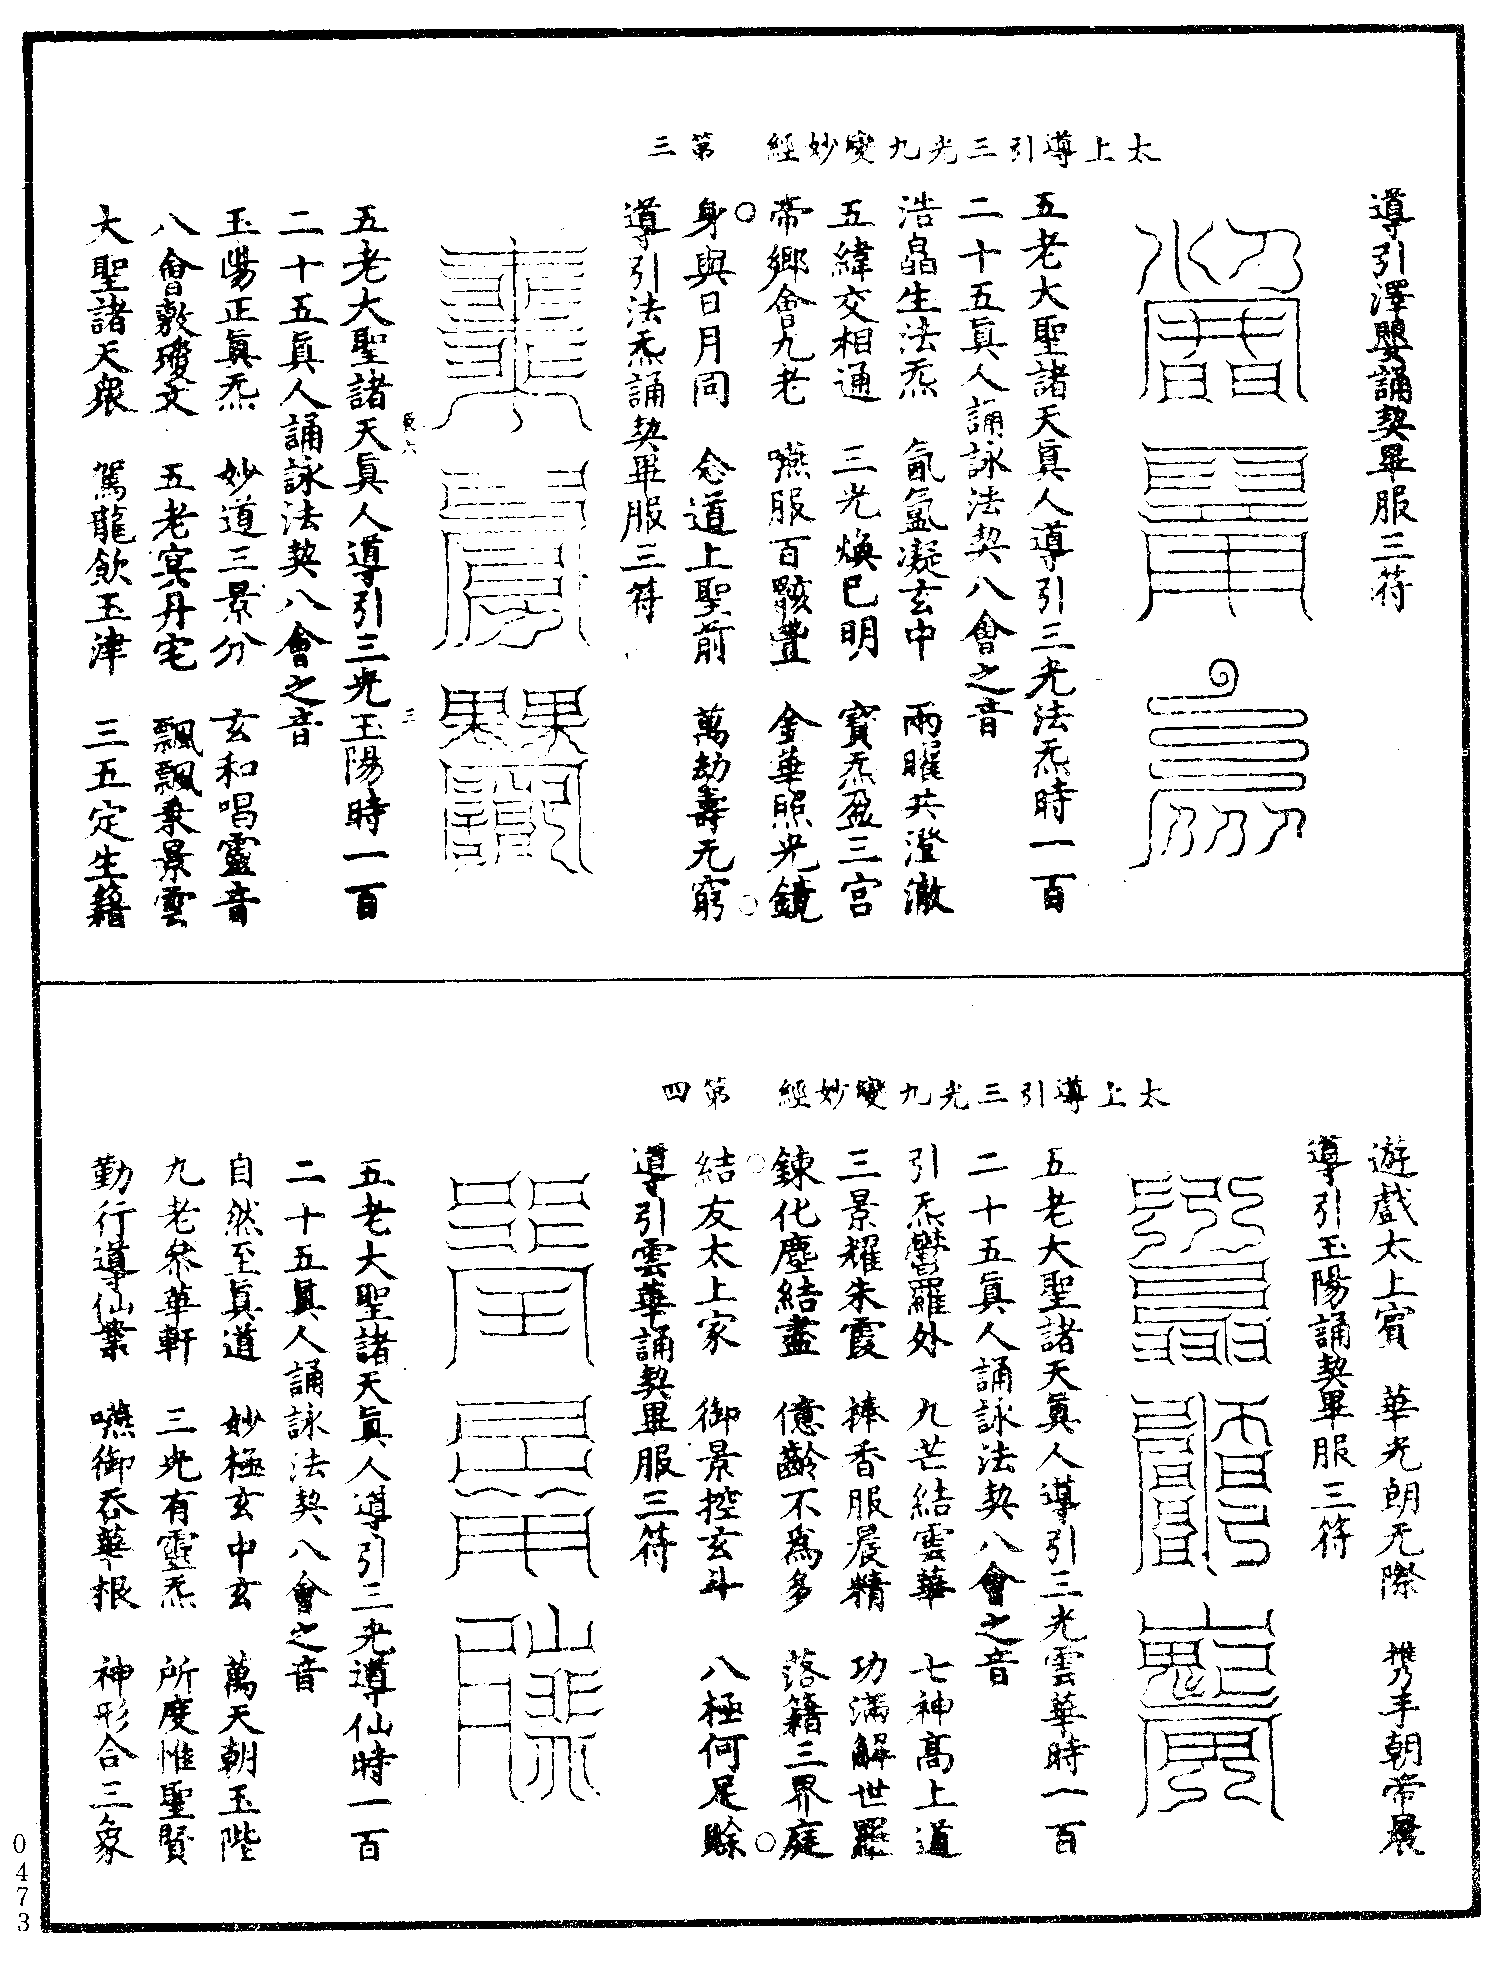 太上導引三光九變妙經　第三
導引澤嬰誦契畢服三符
五老大聖諸天眞人導引三光法炁時一百
二十五眞人誦詠法契八會之音
浩皛生法炁　氤氳凝玄中　兩曜共澄澈
五緯交相通　三光煥已明　寶炁盈三宮
帝鄉會九老　嚥服百骸豐　金華照光鏡
身與日月同　念道上聖前　萬劫壽无窮
導引法炁誦契畢服三符
五老大聖諸天眞人導引三光玉陽時一百
二十五眞人誦詠法契八會之音
玉陽正眞炁　妙道三景分　玄和唱靈音
八會敷瓊文　五老冥丹宅　飄飄乘景雲
大聖諸天衆　駕龍飲玉津　三五定生籍
太上導引三光九變妙經　第四
遊戲太上賓　華光朗无際　携手朝帝晨
導引玉陽誦契畢服三符
五老大聖諸天眞人導引三光雲華時一百
二十五眞人誦詠法契八會之音
引炁鬱羅外　九芒結雲華　七神高上道
三景耀朱霞　捧香服晨精　功滿解世羅
鍊化塵結盡　億齡不爲多　落籍三界庭
結友太上家　御景控玄斗　八極何足賒
導引雲華誦契畢服三符
五老大聖諸天眞人導引三光導仙時一百
二十五眞人誦詠法契八會之音
自然至眞道　妙極玄中玄　萬天朝玉陛
九老參華軒　三光有靈炁　所度惟聖賢
勤行導仙業　嚥御吞華根　神形合三象
0473